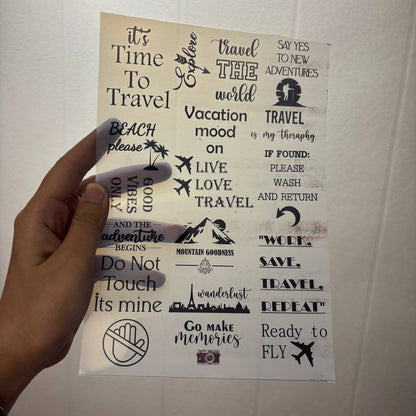 it's
Time
To
Travel
Explore
travel
THE
world
SAY YES
TO NEW
ADVENTURES
BEACH
please
Vacation
mood
on
TRAVEL
is my theraphy.
GOOD
VIBES
ONLY
LIVE
LOVE
TRAVEL
IF FOUND:
PLEASE
WASH
AND RETURN
AND THE
adventure
BEGINS
MOUNTAIN GOODNESS
"WORK,
SAVE,
TRAVEL,
REPEAT"
Do Not
Touch
Its mine
wanderlust
Go make
memories
Ready to
FLY